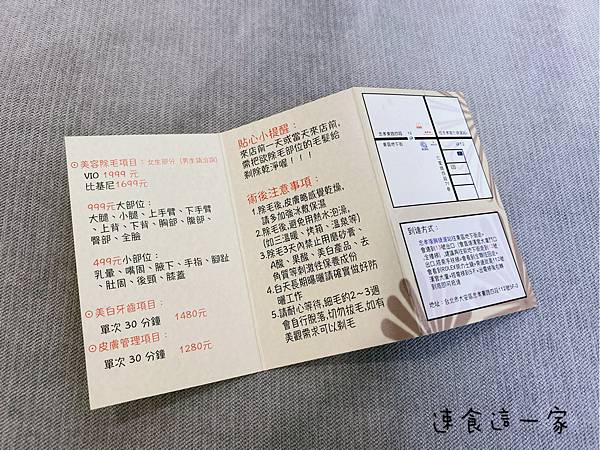 ⊙美容除毛項目：女生部分（男生請洽詢）
VIO 1999 元
比基尼1699元
999元大部位：
大腿、小腿、上手臂、下手臂
、上背、下背、胸部、腹部、
臀部、全臉
499元小部位：
乳暈、嘴周、腋下、手指、腳趾
、肚周、後頸、膝蓋
⊙美白牙齒項目：
單次 30 分鐘 1480元
⊙皮膚管理項目：
單次 30 分鐘 1280元
貼心小提醒：
來店前一天或當天來店前，
需把欲除毛部位的毛髮給
剃除乾淨喔！！！
術後注意事項：
1.除毛後,皮膚略感覺乾燥,
請多加強冰敷保濕
2.除毛後,避免用熱水泡澡,
(如三溫暖、烤箱、溫泉等)
3.除毛3天內禁止用磨砂膏、
A酸、果酸、美白產品、去
角質等刺激性保養成份
4.白天長期曝曬請確實做好防
曬工作
5.請耐心等待,細毛約2~3週
會自行脫落,切勿拔毛,如有
美觀需求可以剃毛
忠孝東路四段
東區地下街
到達方式：
地址：台北市大安區忠孝東路四段112號5F-3
速食這一家